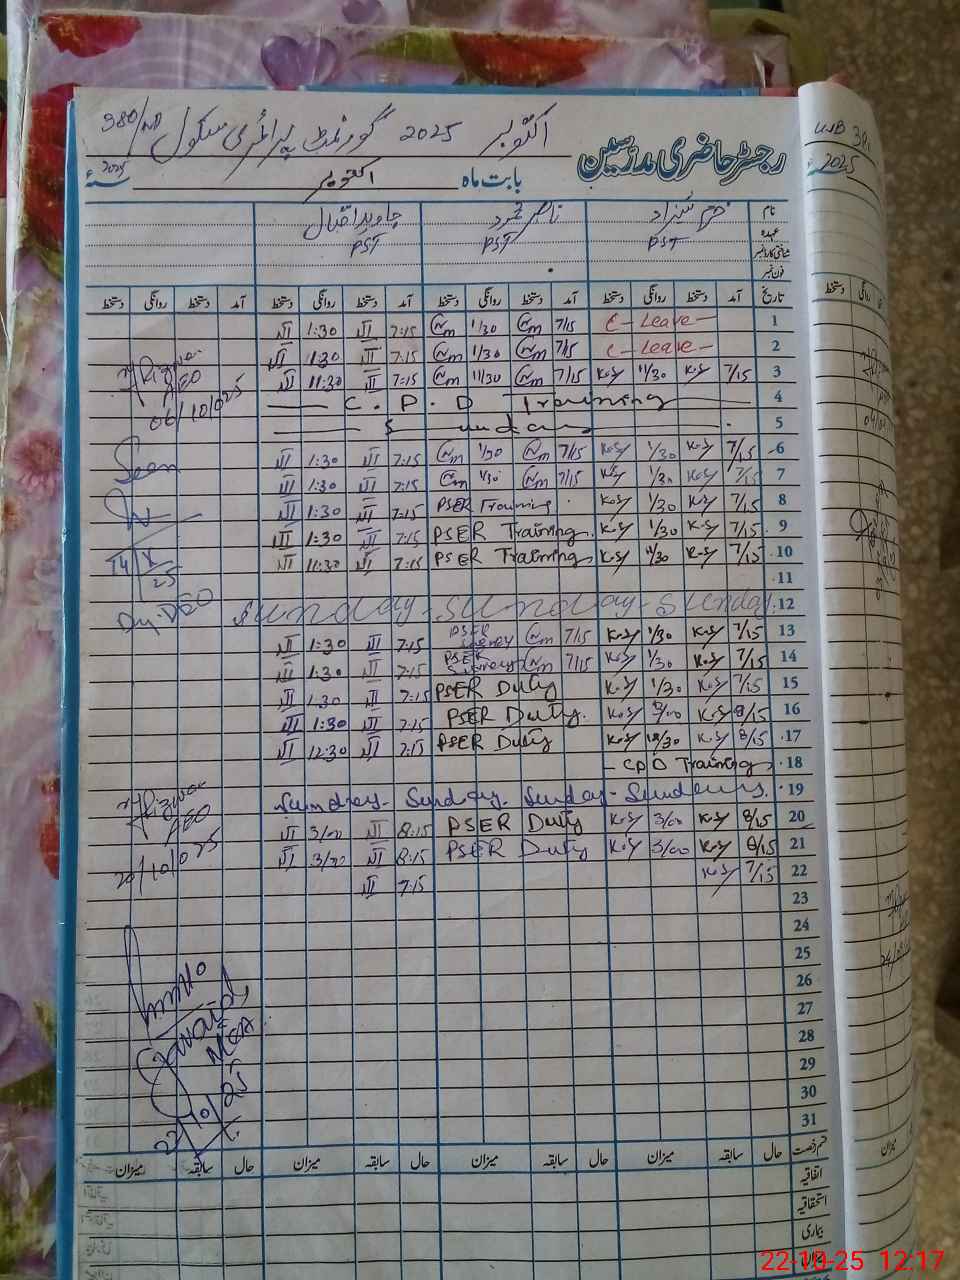 اکتوبر 2025 گورنمنٹ پرائمری سکول 380/WB
رجسٹر حاضری مدرسین
بابت ماہ اکتوبر 2025 سنۂ
نام خرم شہزاد ناصر محمود جاوید اقبال
عہدہ PST PST PST
شناختی کارڈ نمبر
فون نمبر
تاریخ آمد دستخط روانگی دستخط آمد دستخط روانگی دستخط آمد دستخط روانگی دستخط آمد دستخط روانگی دستخط
1 C-Leave- 7/15 1/30 7:15 1:30
2 C-Leave- 7/15 1/30 7:15 1:30
3 7/15 K.SY 11/30 K.SY 7/15 11/30 7:15 11:30
4 C.P.D Training
5 Sunday
6 7/15 K.SY 1/30 K.SY 7/15 1/30 7:15 1:30
7 7/15 K.SY 1/30 K.SY 7/15 1/30 7:15 1:30
8 7/15 K.SY 1/30 K.SY PSER Training 7:15 1:30
9 7/15 K.SY 1/30 K.SY PSER Training 7:15 1:30
10 7/15 K.SY 11/30 K.SY PSER Training 7:15 11:30
11
12 Sunday-Sunday-Sunday
13 7/15 K.SY 1/30 K.SY 7/15 PSER Survey 7:15 1:30
14 7/15 K.SY 1/30 K.SY 7/15 PSER Survey 7:15 1:30
15 7/15 K.SY 1/30 K.SY PSER Duty 7:15 1:30
16 8/15 K.SY K.SY PSER Duty 7:15 1:30
17 8/15 K.SY 12/30 K.SY PSER Duty 7:15 12:30
18 -CPD Training
19 Sunday- Sunday- Sunday- Sunday
20 8/15 K.SY 3/00 K.SY PSER Duty 8:15 3/00
21 8/15 K.SY 3/00 K.SY PSER Duty 8:15 3/00
22 7/15 K.SY 7:15
23
24
25
26
27
28
29
30
31
AEO
06/10/025
Seen
14/X/25
Dy.DEO
AEO
20/10/025
Jawaid
MEA
22/10/25
قسم رخصت حال سابقہ میزان حال سابقہ میزان حال سابقہ میزان حال سابقہ میزان
اتفاقیہ
استحقاقیہ
بیماری
میزان
2025
دستخط
میزان
22-10-25 12:17